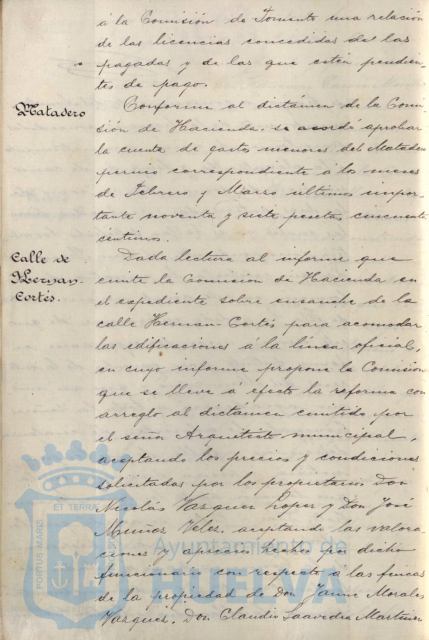 á la Comisión de Fomento una relación
de las licencias concedidas de las
pagadas y de las que estén pendien-
tes de pago.
Matadero
Conforme al dictámen de la Comi-
sión de Hacienda se acordó aprobar
la cuenta de gastos menores del Matadero
correspondiente á los meses
de Febrero y Marzo últimos impor-
tante noventa y siete pesetas cincuenta
centimos.
Calle de
Hernan-
Cortés.
Dada lectura al informe que
emite la Comisión de Hacienda en
el expediente sobre ensanche de la
calle Hernan-Cortés para acomodar
las edificaciones á la línea oficial,
en cuyo informe propone la Comisión
que se lleve á efecto la reforma con
arreglo al dictámen emitido por
el señor Arquitecto municipal,
aceptando los precios y condiciones
solicitadas por los propietarios Don
Nicolás Vazquez Lopez y Don José
Muñoz Velez, aceptando las valora-
ciones y aprecios hechos por dicho
funcionario con respecto á las fincas
de la propiedad de don Jaime Morales
Vazquez, Don Claudio Saavedra Martinez
PORTUS MARIS ET TERRAE
Ayuntamiento de
HUELVA